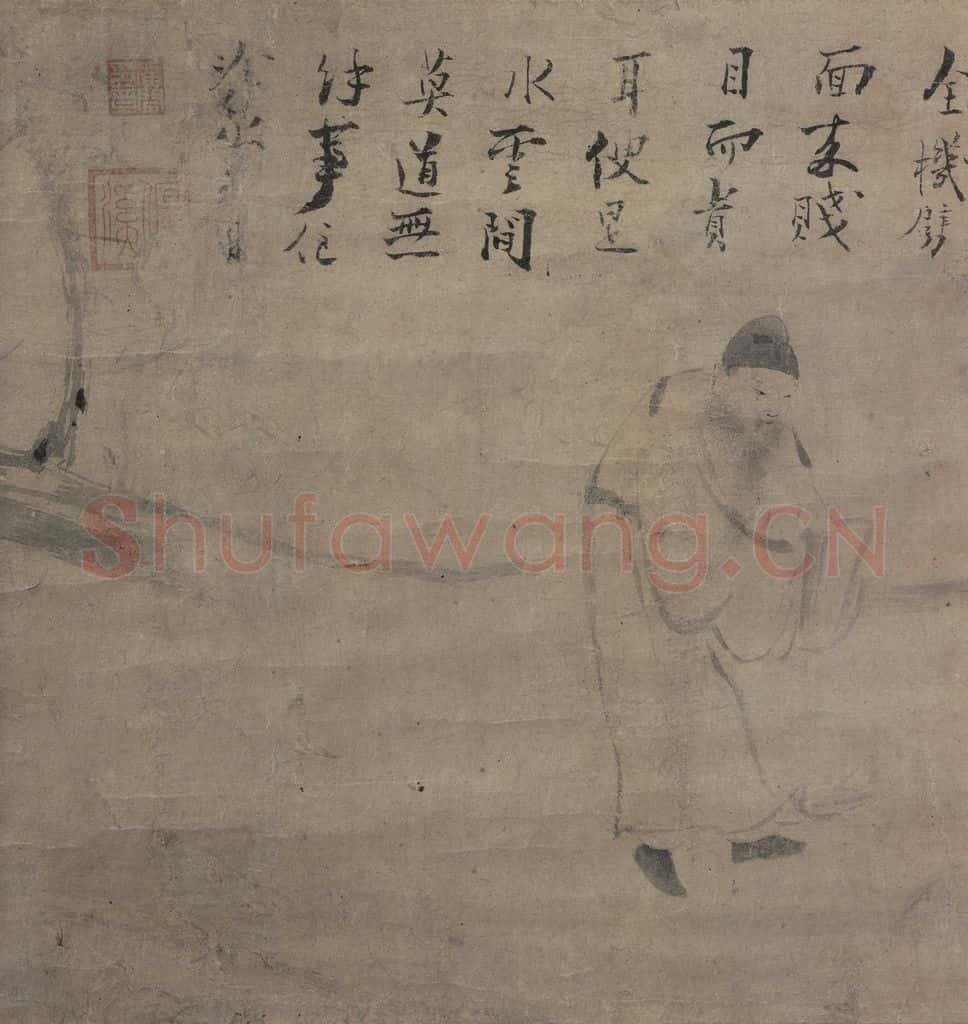 全機劈
面來賤
目而貴
耳便是
水雲間
莫道無
事住
Shufawang.CN